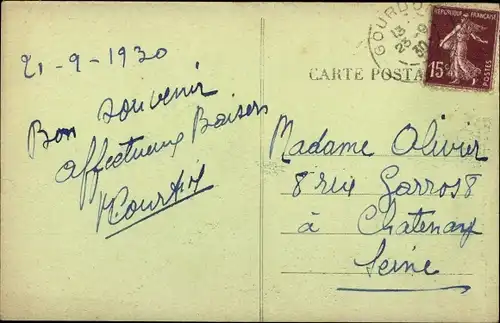 21-9-1930
Bon souvenir
affectueux Baisers
GOURDON
13
23-9
30
REPUBLIQUE FRANÇAISE
15c
POSTES
CARTE POSTA
Madame Olivier
8 rue Garros 8
à Chatenay
Seine